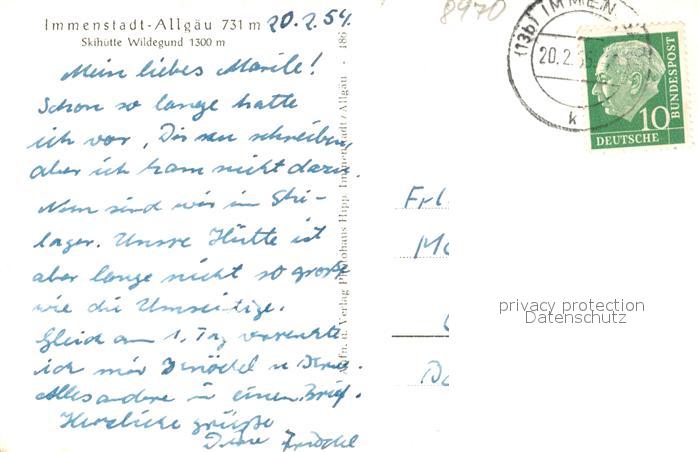 Immenstadt-Allgäu 731 m
20.2.54.
Skihütte Wildegund 1300 m
8970
Mein liebes Marile!
Schon so lange hatte
ich vor, Dir zu schreiben,
aber ich kam nicht dazu.
Nun sind wir im Ski-
lager. Unsre Hütte ist
aber lange nicht so groß
wie die Umseitige.
Gleich am 1. Tag verrenkte
ich mir Knöchel u
Alles andere in einem Brief.
Herzliche Grüße
Deine
Aufn. u. Verlag Photohaus Hipp, Immenstadt/Allgäu · 486
(13b) IMMEN
20.2.
k
10
DEUTSCHE
BUNDESPOST
Frl.
privacy protection
Datenschutz